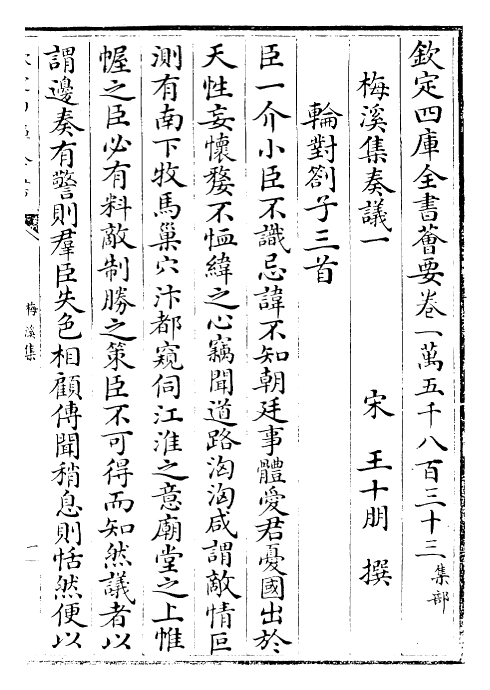 欽定四庫全書薈要卷一萬五千八百三十三集部
梅溪集奏議一
宋王十朋撰
輪對劄子三首
臣一介小臣不識忌諱不知朝廷事體愛君憂國出於
天性妄懷嫠不恤緯之心竊聞道路洶洶咸謂敵情叵
測有南下牧馬巢穴汴都窺伺江淮之意廟堂之上帷
幄之臣必有料敵制勝之策臣不可得而知然議者以
謂邊奏有警則羣臣失色相顧傳聞稍息則恬然便以
梅溪集
一